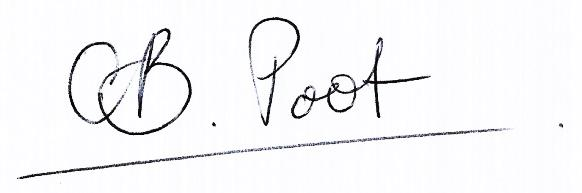 B. Poot